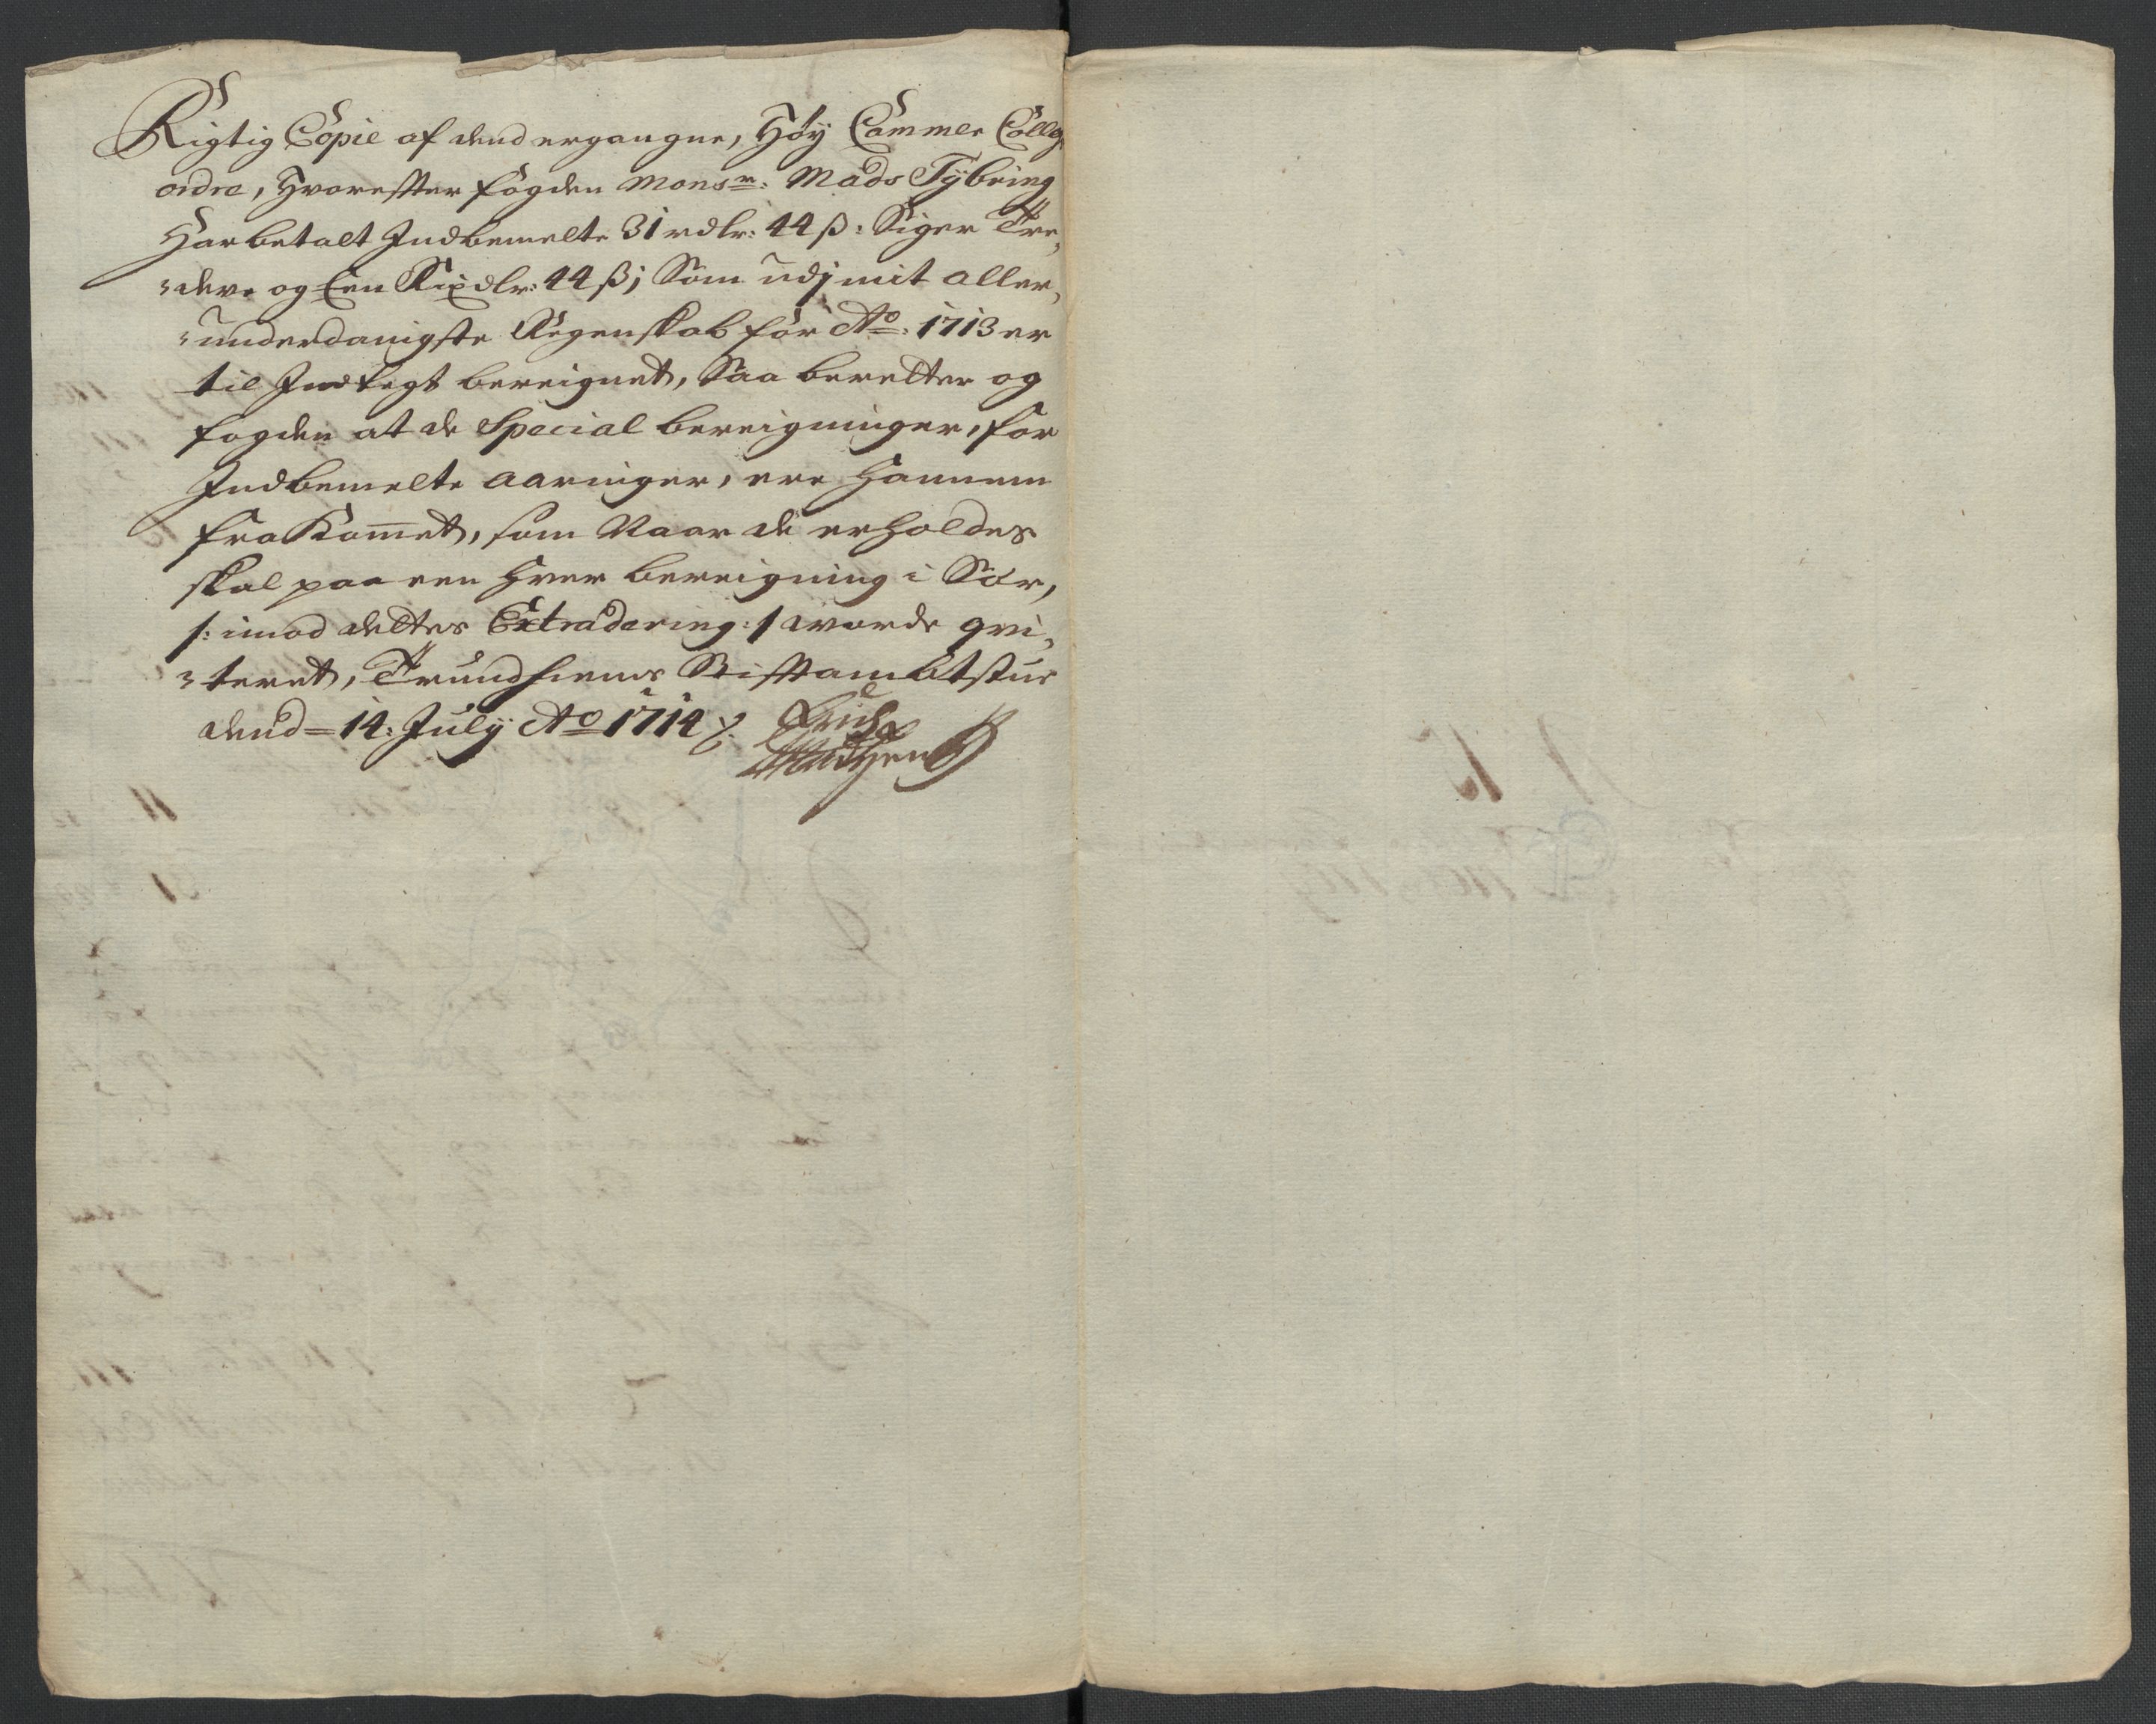 Rigtig Copie af dend ergangne, Høy Cammer Colleg.
ordre, Hvorefter fogden Monsr: Mads Tybring
Har betalt Indbemelte 31 rdlr: 44 ß: Siger Tre,
"deve og Een Rixdlr: 44 ß; Som udj mit aller,
"underdanigste Regenskab for Ao: 1713 er
til Indtegt bereignet, Saa beretter og
fogden at de Special bereigninger, for
Indbemelte aaringer, ere Hannem
fra Kommet, som Naar de erholdes
skal paa een Hver bereigning i Sær,
/: imod dettes Extradering :/ worde qvi,
"teret, Trundhiems Stiftambtstue
dend = 14: July Ao 1714 ./.
Erich